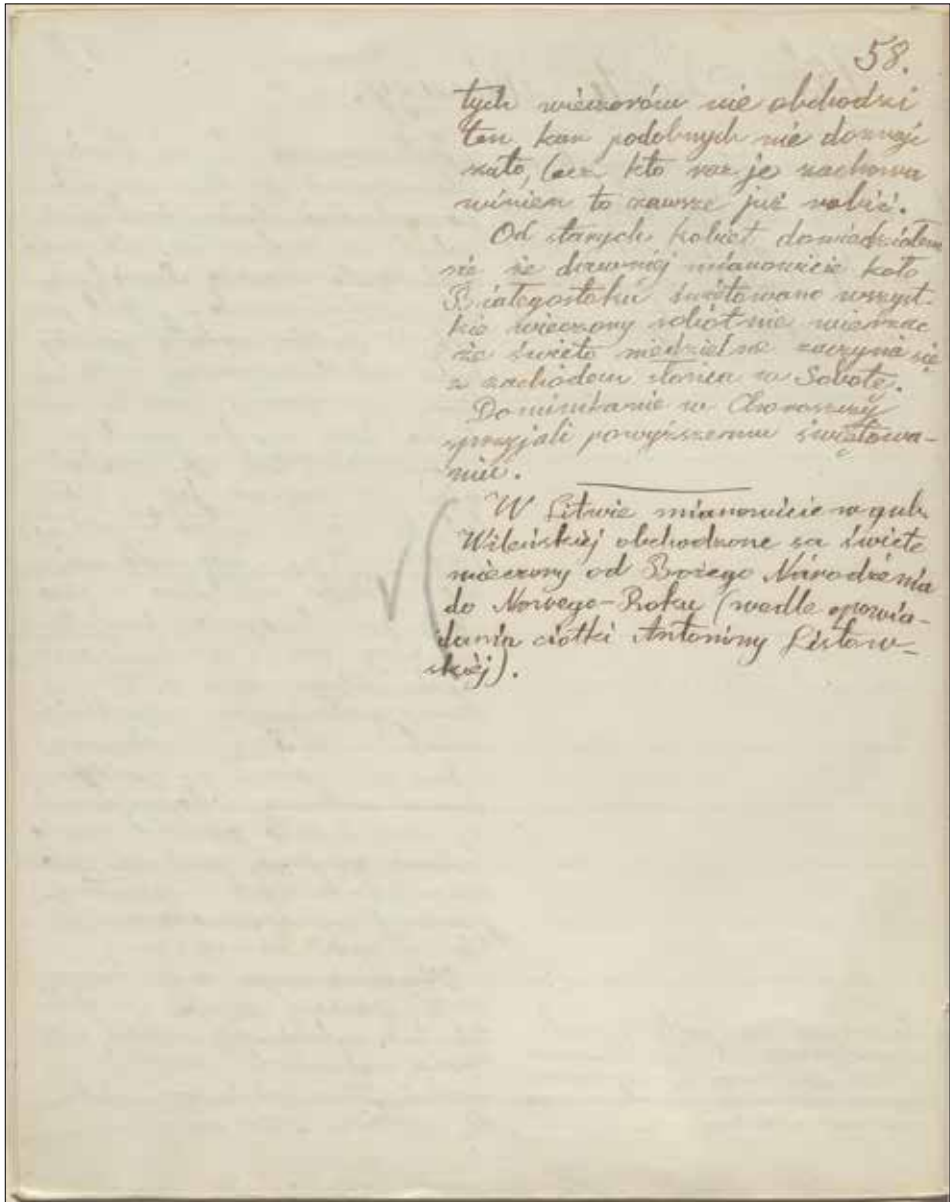 58.
tych wieczorów nie obchodzi
ten kar podobnych nie doznaje
zato, lecz kto raz je zachowa
winien to zawsze już robić.
Od starych kobiet dowiedziałem
się że dawniej mianowicie koło
Białegostoku świętowano wszyst-
kie wieczory sobotnie wierząc
że święto niedzielne zaczyna się
z zachodem słońca w Sobotę.
Dominikanie w Choroszczy
sprzyjali powyższemu świętowa-
niu.
W Litwie mianowicie w gub.
Wileńskiéj obchodzone są święte
wieczory od Bożego Narodzenia
do Nowego-Roku (wedle opowia-
dania ciotki Antoniny Listow-
skiéj).